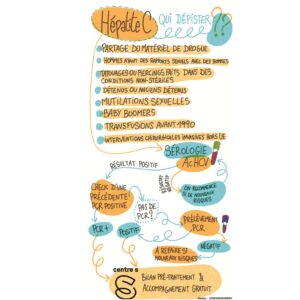 Hépatite C
QUI DÉPISTER ??
PARTAGE DU MATÉRIEL DE DROGUE
HOMMES AYANT DES RAPPORTS SEXUELS AVEC DES HOMMES
TATOUAGES OU PIERCINGS FAITS DANS DES
CONDITIONS NON-STÉRILES
DÉTENUS OU ANCIENS DÉTENUS
MUTILATIONS SEXUELLES
BABY BOOMERS
TRANSFUSIONS AVANT 1990
INTERVENTIONS CHIRURGICALES INVASIVES HORS UE
SÉROLOGIE
AcHCV
RÉSULTAT POSITIF
RÉSULTAT
NÉGATIF
ON RECOMMENCE
SI DE NOUVEAUX
RISQUES
CHECK D'UNE
PRÉCÉDENTE
PCR POSITIVE
PAS DE
PCR?
PRÉLÈVEMENT
PCR
PCR +
POSITIF
NÉGATIF
À REFAIRE SI
NOUVEAUX RISQUES
centre s
S
BILAN PRÉ-TRAITEMENT &
ACCOMPAGNEMENT GRATUIT